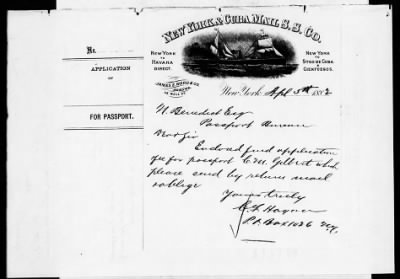 No.
APPLICATION
OF
FOR PASSPORT.
NEW YORK & CUBA MAIL S. S. CO.
NEW YORK
TO
HAVANA
DIRECT.
NEW YORK
TO
CIENFUEGOS.
JAMES E. WARD & CO.
New York, Sept 5th 1882
N. Benedict Esq
Passport Bureau
Dear Sir
Enclosed find application
fee for passport C. M. Gilbert which
please send by return mail
& oblige
Yours truly
P.O. Box 1026 N.Y.